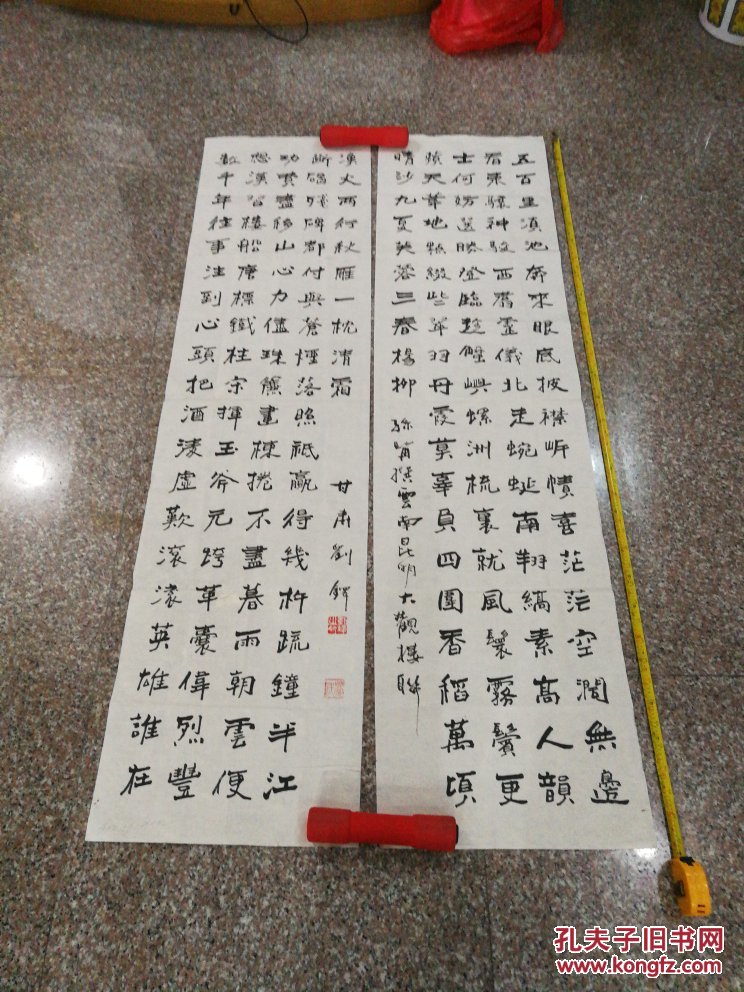 五百里滇池奔來眼底披襟岸幘喜茫茫空闊無邊
看東驤神駿西翥靈儀北走蜿蜒南翔縞素高人韻
士何妨選勝登臨趁蟹嶼螺洲梳裹就風鬟霧鬢更
蘋天葦地點綴些翠羽丹霞莫辜負四圍香稻萬頃
晴沙九夏芙蓉三春楊柳
孫髯撰雲南昆明大觀樓聯
數千年往事注到心頭把酒凌虛歎滾滾英雄誰在
想漢習樓船唐標鐵柱宋揮玉斧元跨革囊偉烈豐
功費盡移山心力儘珠簾畫棟捲不盡暮雨朝雲便
斷碣殘碑都付與蒼煙落照祇贏得幾杵疏鐘半江
漁火兩行秋雁一枕清霜
甘肅劉
孔夫子旧书网
www.kongfz.com